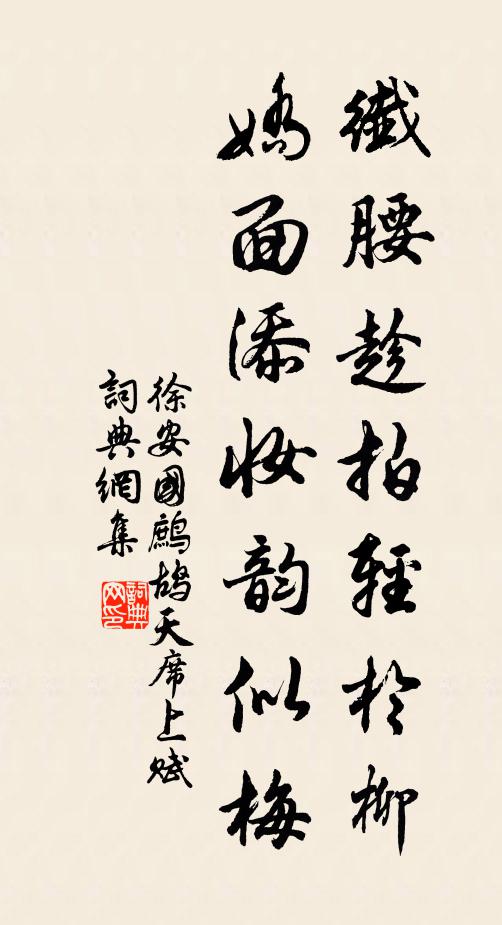 纖腰趁拍輕於柳
嬌面添妝韵似梅
徐安國鷓鴣天席上賦
詞典網集
詞典網印